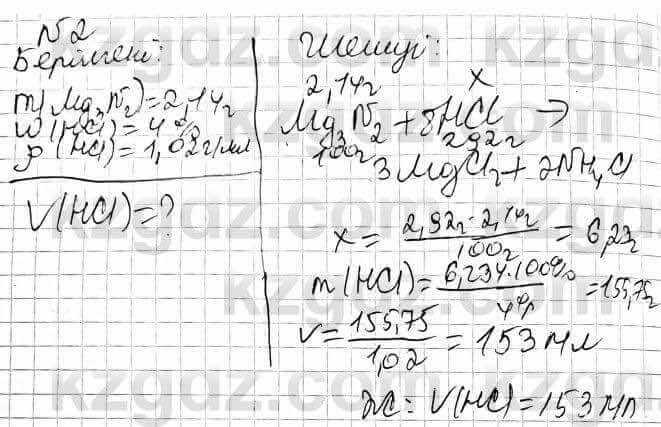 N2
Берілгені:
m(Mg₃N₂)=2,14г
w(HCl)=4%
ρ(HCl)=1,02г/мл
V(HCl)=?
Шешуі:
2,14г x
Mg₃N₂+8HCl →
100г 292г
3MgCl₂+2NH₄Cl
x = 2,92г·2,14г / 100г = 6,23г
m(HCl)= 6,234·100% / 4% =155,75г
V= 155,75 / 1,02 = 153 мл
Ж: V(HCl)=153 мл
kzgdz.com